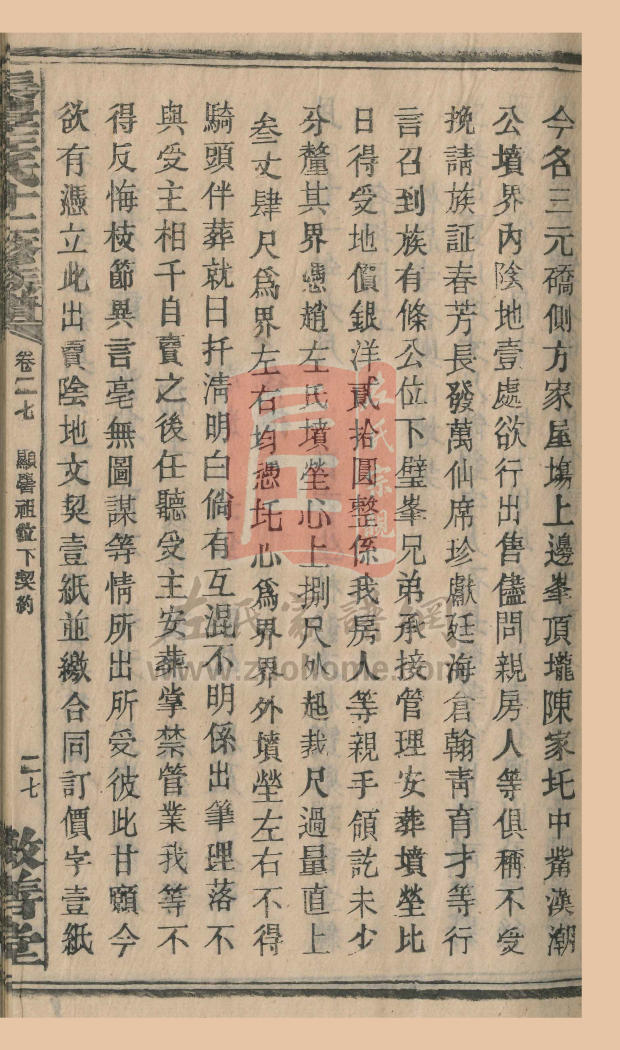 今名三元礄側方家屋塲上邊峯頂壠陳家圫中觜漢潮
公墳界內陰地壹處欲行出售儘問親房人等俱稱不受
挽請族証春芳長發萬仙席珍獻廷海倉翰靑育才等行
言召到族有條公位下璧峯兄弟承接管理安葬墳塋比
日得受地價銀洋貳拾圓整係我房人等親手領訖未少
分釐其界憑趙左氏墳塋心上捌尺外起裁尺過量直上
叁丈肆尺爲界左右均憑圫心爲界界外墳塋左右不得
騎頭伴葬就日扦淸明白倘有互混不明係出筆理落不
與受主相干自賣之後任聽受主安葬掌禁管業我等不
得反悔枝節異言毫無圖謀等情所出所受彼此甘願今
欲有憑立此出賣陰地文契壹紙並繳合同訂價字壹紙
卷二七 顯醫祖位下契約 二七 敬善堂
左氏宗親
左氏家譜網
www.zuohome.com